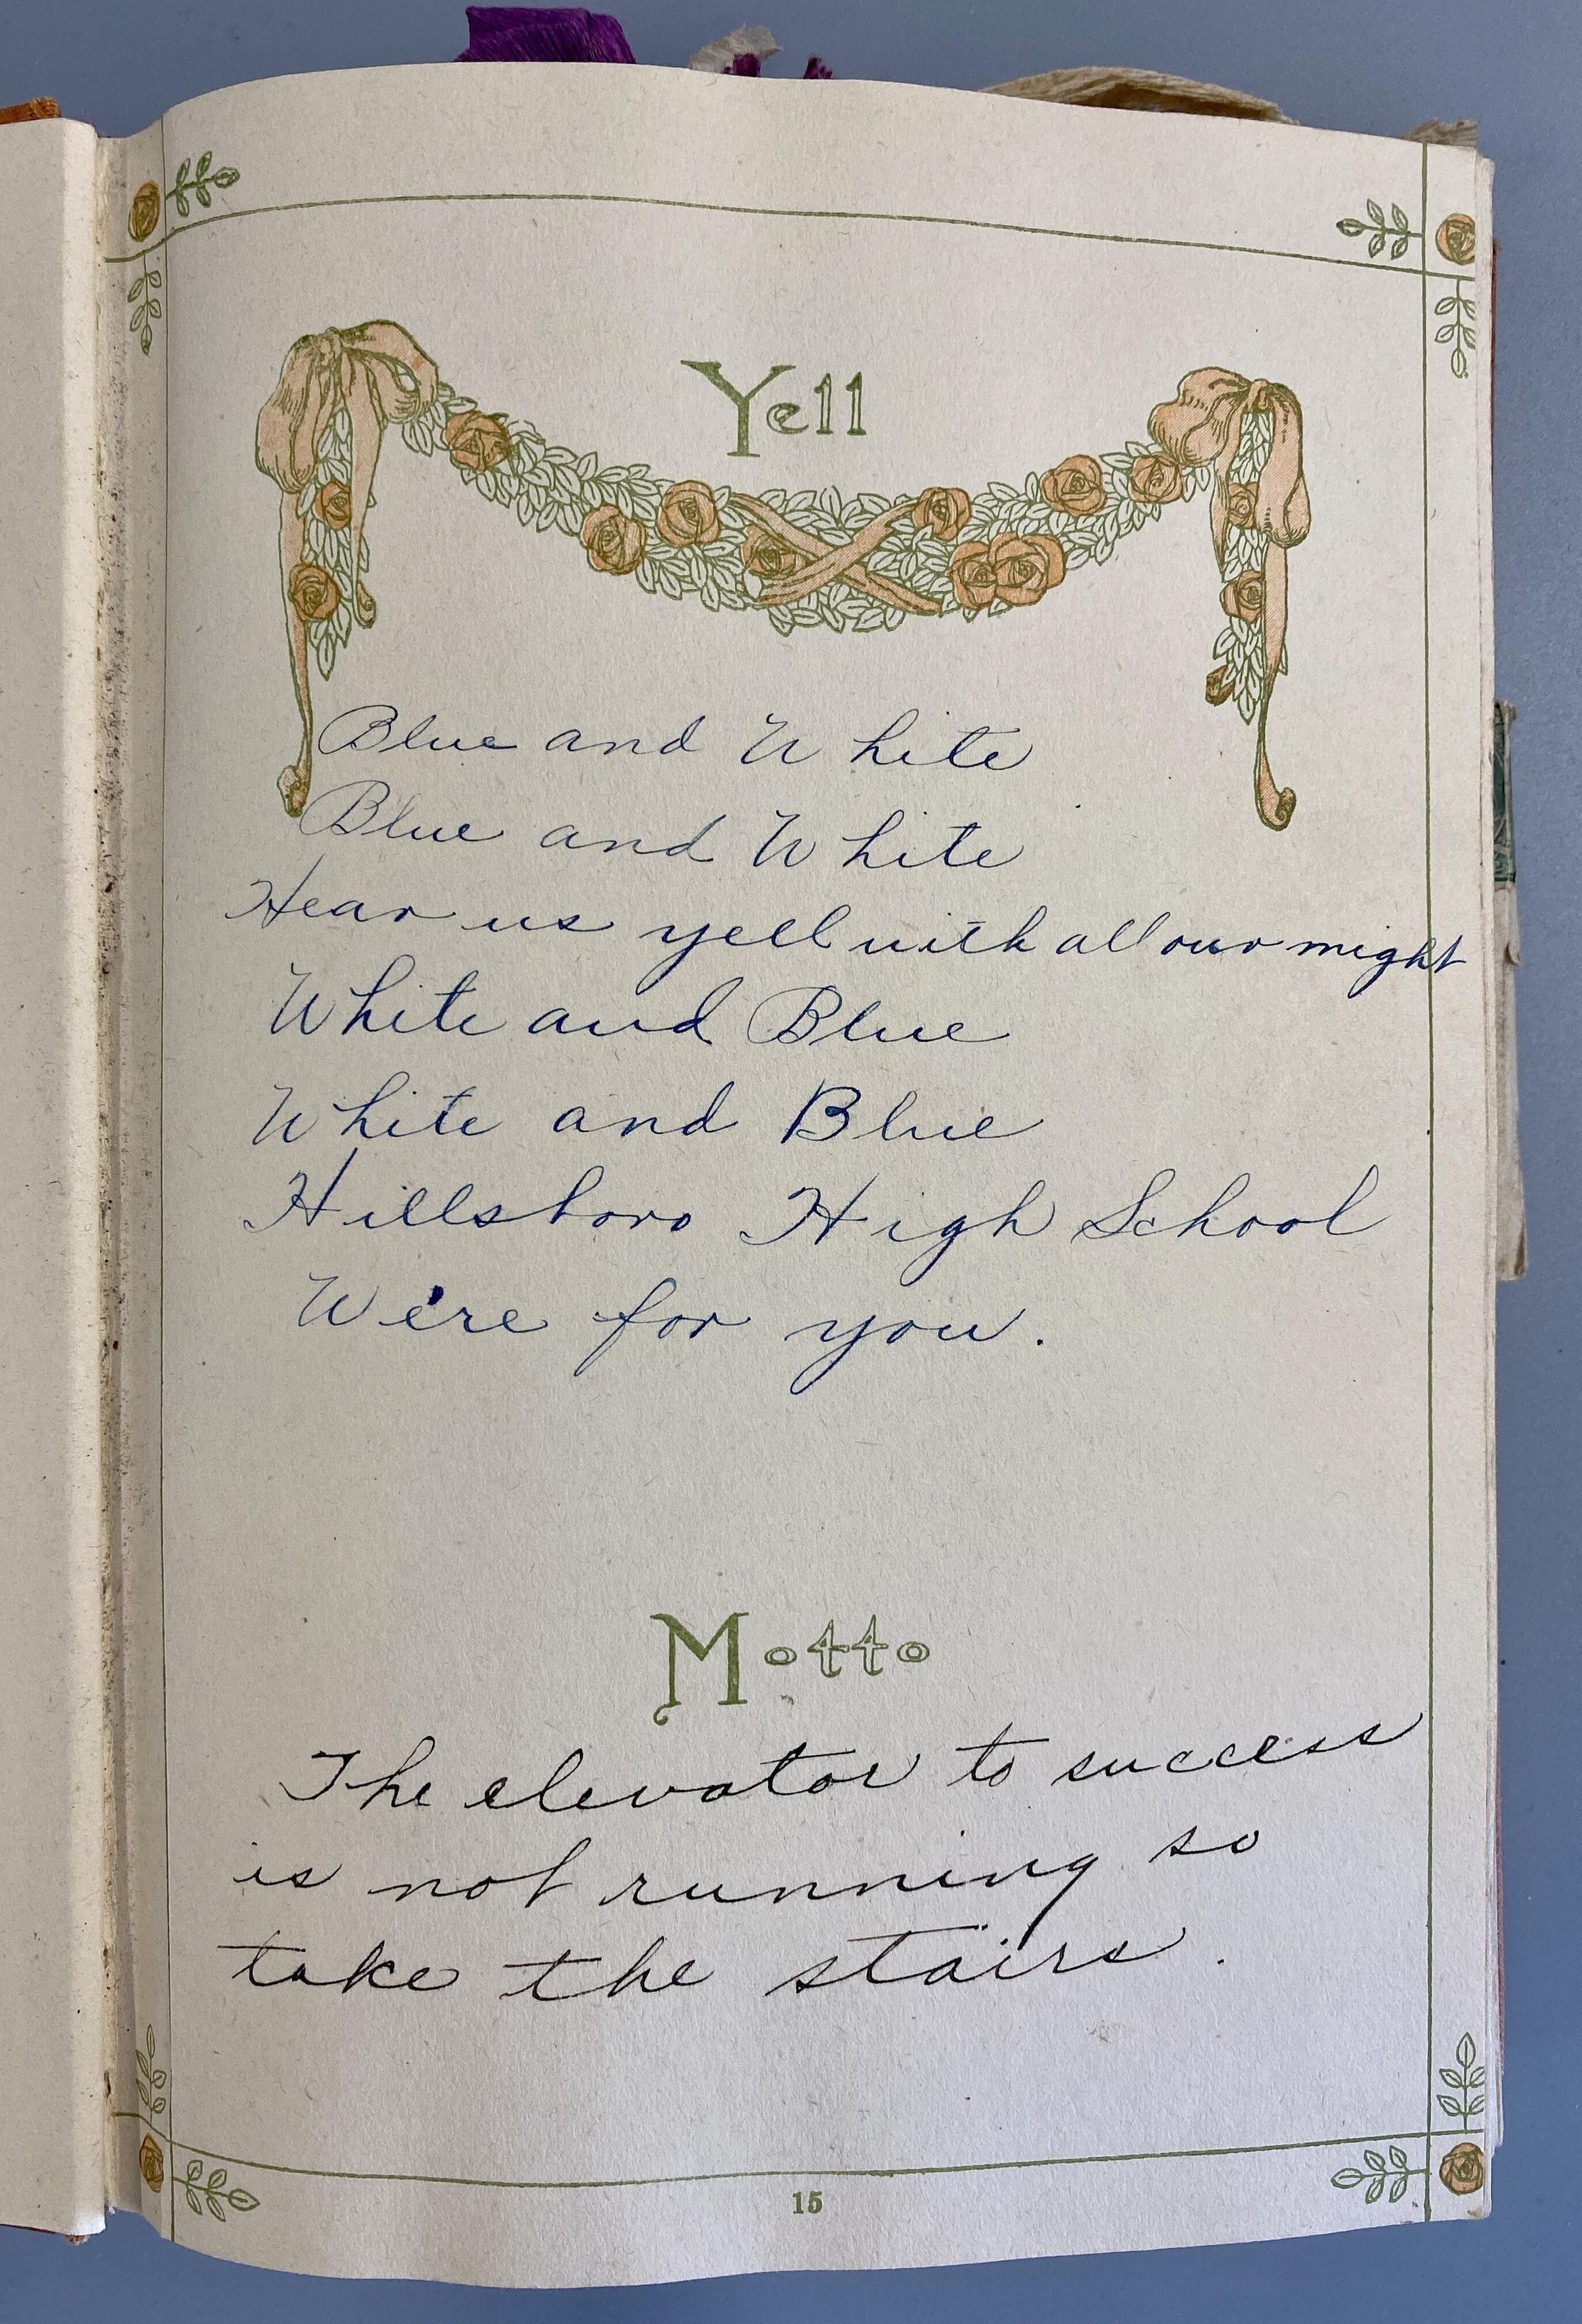 Yell
Blue and White
Blue and White
Hear us yell with all our might
White and Blue
White and Blue
Hillsboro High School
We're for you.
Motto
The elevator to success
is not running so
take the stairs.
15